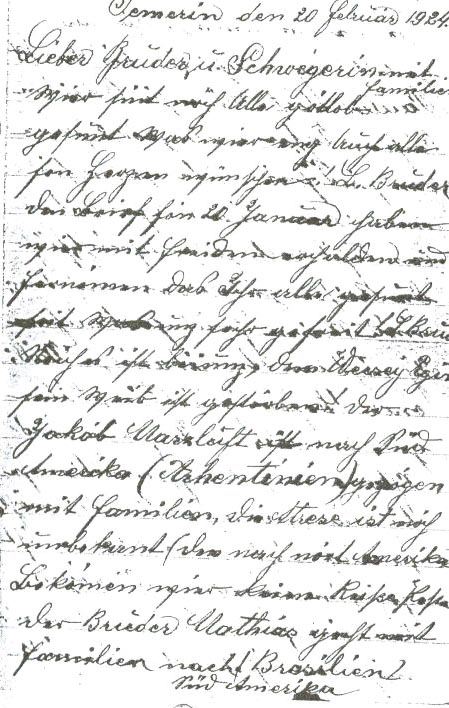 Temerin den 20 februar 1924.
Lieber Bruder u. Schwegerin mit
familie
Wier sint noch Alle gotlob
gesunt was wier eich Auch alle
fon Herzen wünschen! L. Bruder
den Brief fon 20 Januar haben
wier mit freiden erhalden und
fernomen das Ihr alle gesunt
seit was uns sehr gefreit
ist bei uns, dem
sein Weib ist gestorben! der
Jakob ist nach Süd
Amerika (Arhentinien) gezogen
mit familien, die Atrese ist mich
unbekant (den nach nort Amerika
Bekomen wier keine Reise
der Bruder Mathias geht mit
familien nach (Brasilien)
Süd Amerika